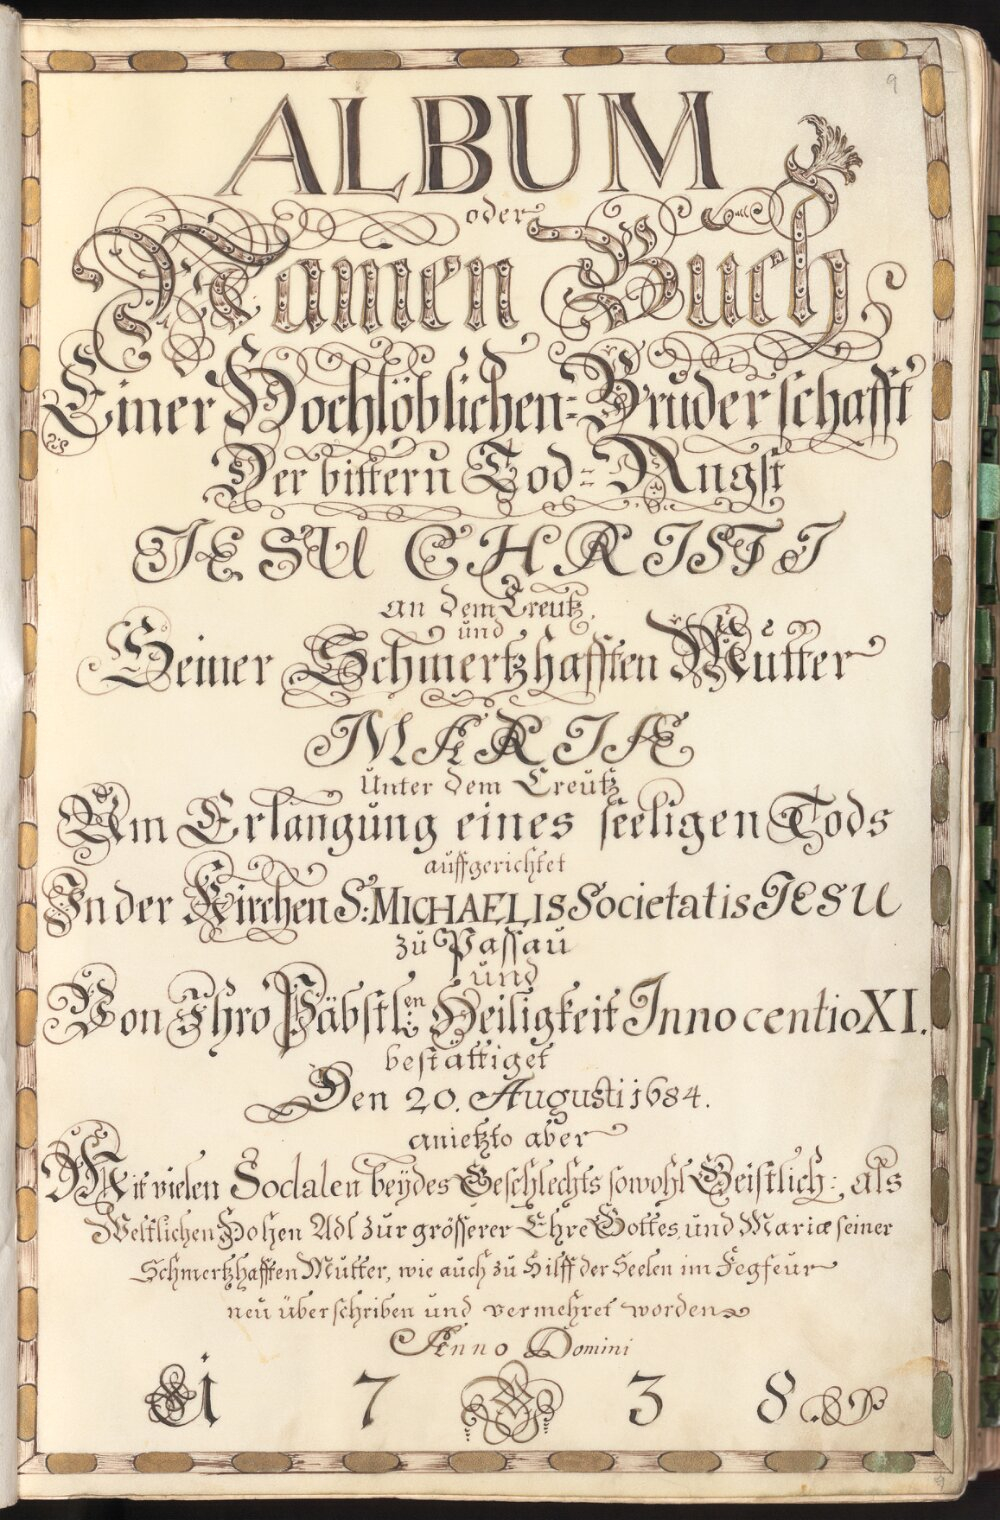 9
ALBUM
oder
Namen Buch
Einer Hochlöblichen=Bruderschafft
Der bittern Tod=Angst
JESU CHRISTI
an dem Creutz,
und
Seiner Schmertzhafften Mutter
MARIÆ
Unter dem Creutz
Um Erlangung eines seeligen Tods
auffgerichtet
In der Kirchen S: MICHAELIS Societatis JESU
zu Passau
und
Von Ihro Päbstl:en Heiligkeit Innocentio XI.
bestättiget
Den 20. Augusti 1684.
anietzto aber
Mit vielen Sodalen beydes Geschlechts sowohl Geistlich: als
Weltlichen Hohen Adl zur grösserer Ehre Gottes, und Mariæ seiner
Schmertzhafften Mutter, wie auch zu Hilff der Seelen im Fegfeur
neu überschriben und vermehret worden
Anno Domini
1738.
9